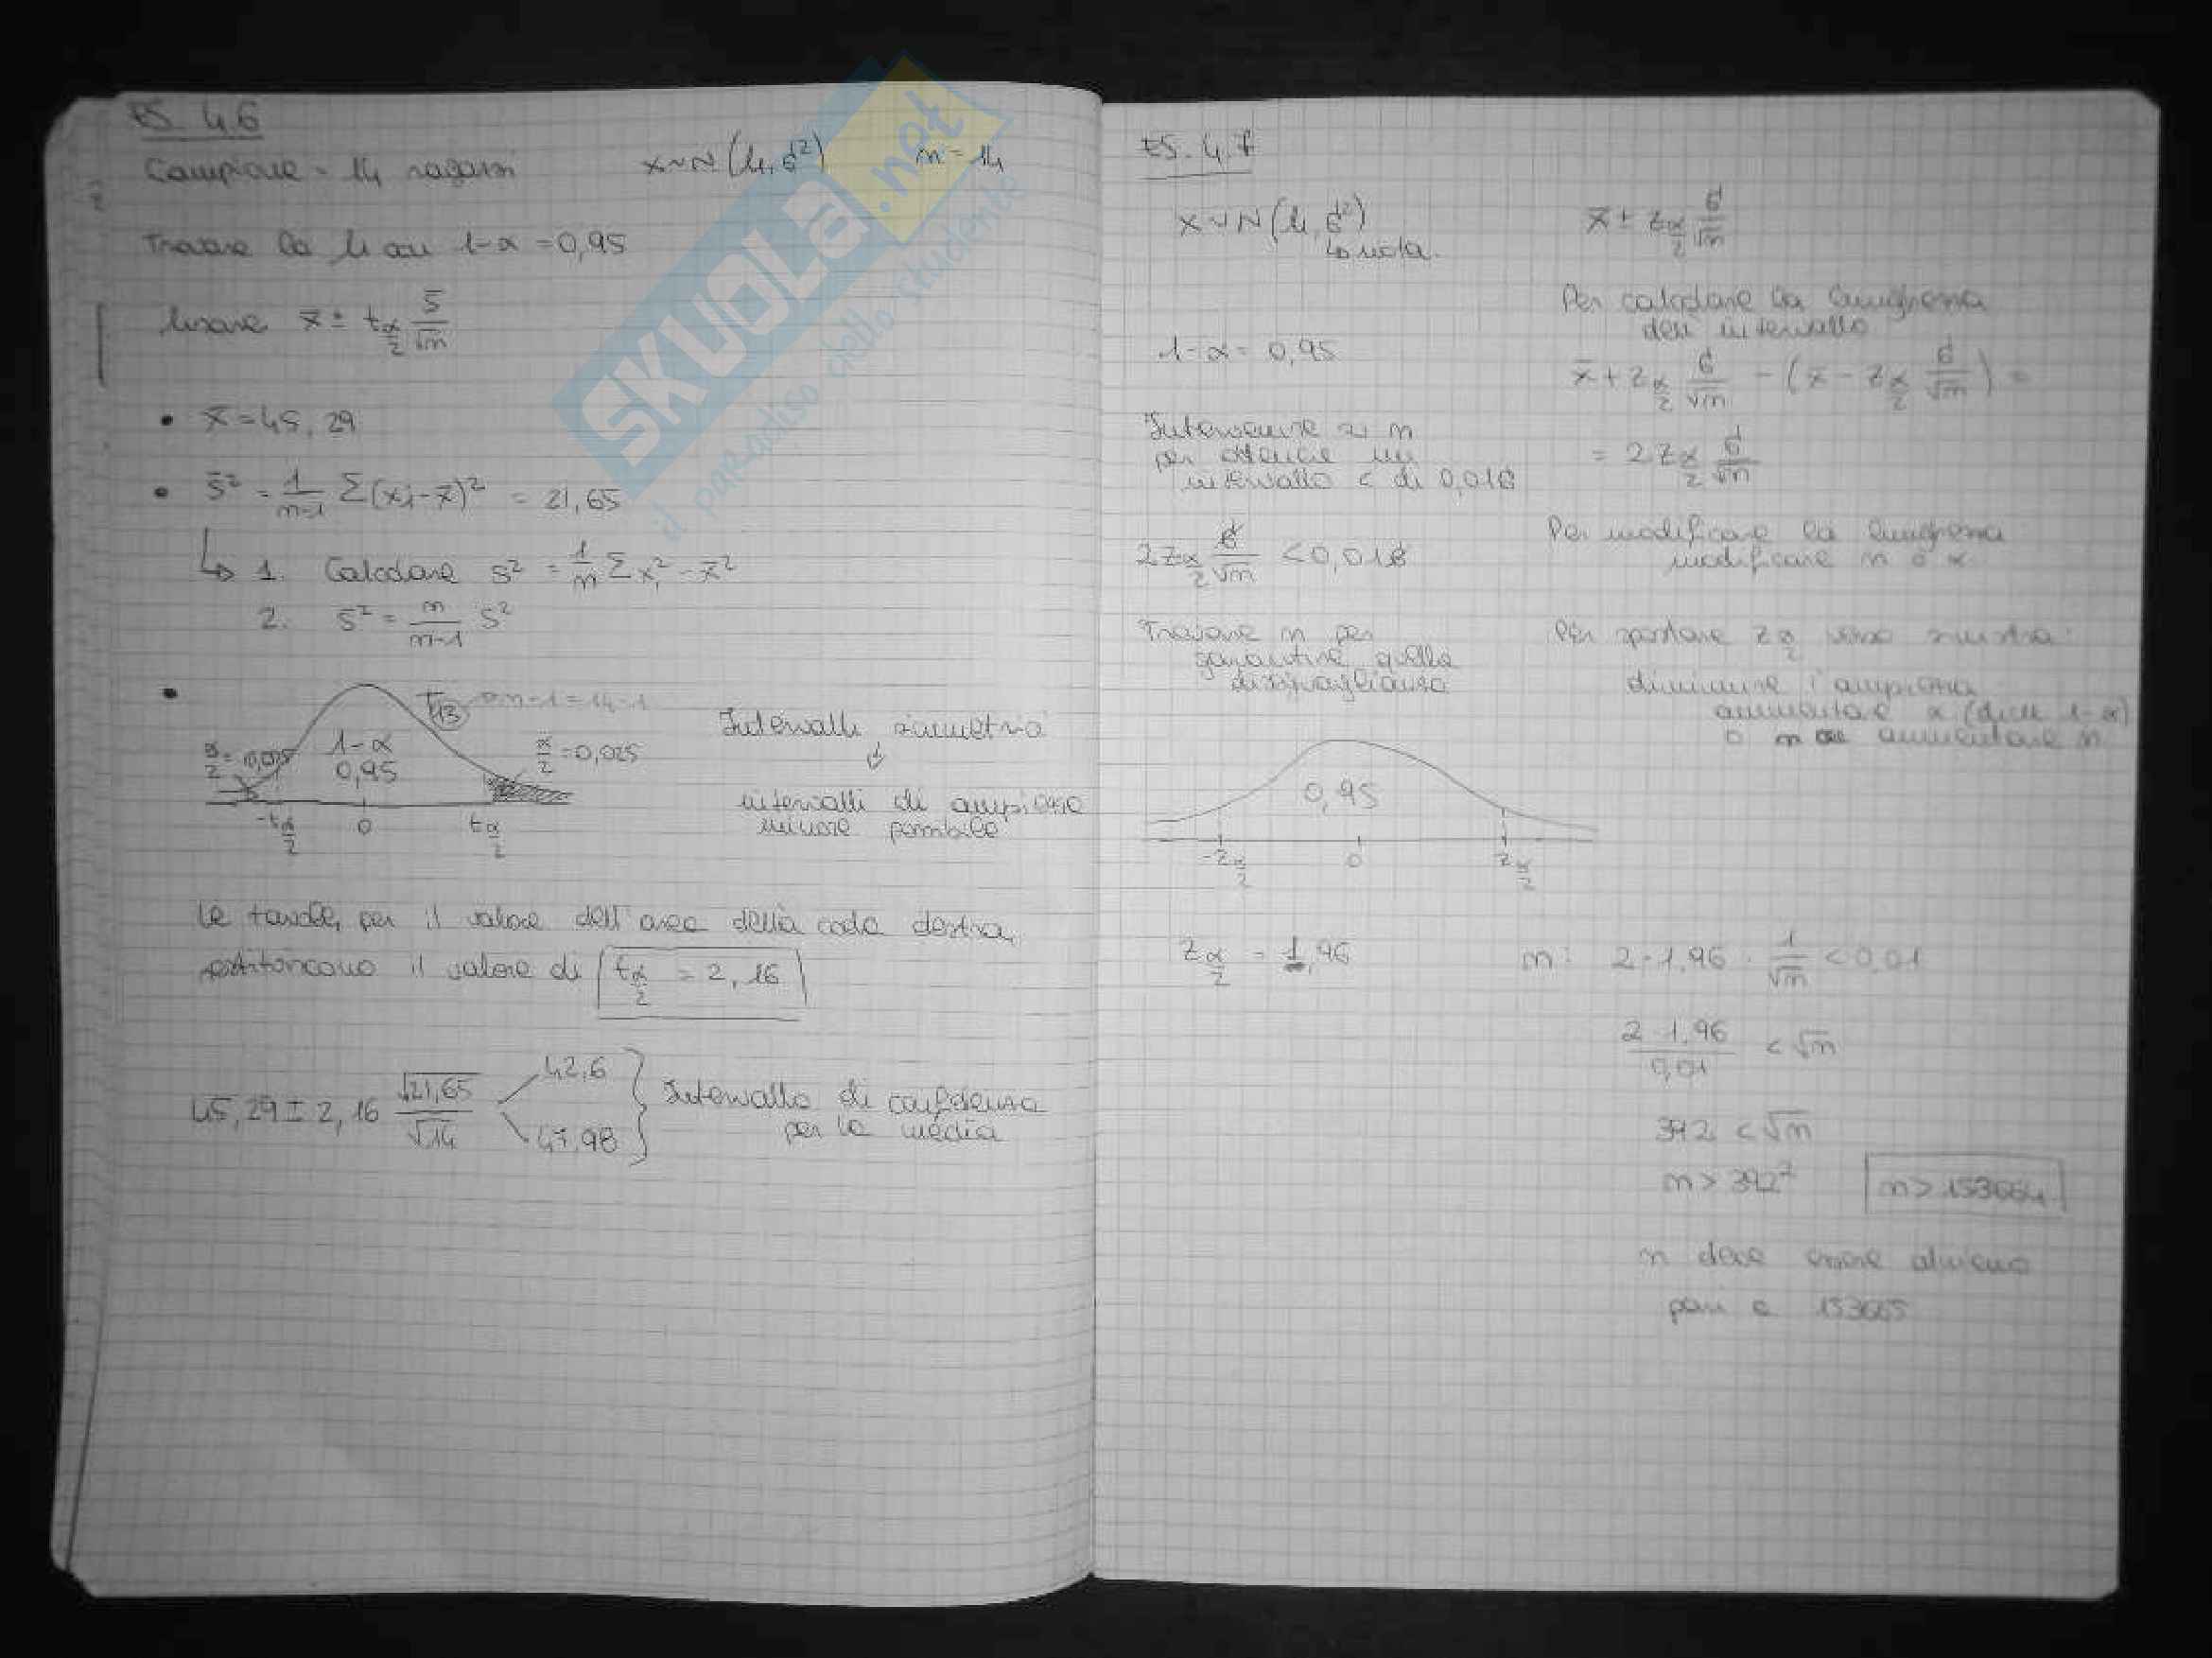 ES. 4.6
Campione = 14 ragazzi x~N(μ,σ²) n=14
Trovare la μ con 1-α=0,95
Usare x̄ ± t_{α/2} s̄/√n
• x̄=45,29
• s̄² = 1/(n-1) Σ(xi-x̄)² = 21,65
↳ 1. Calcolare s² = 1/n Σxi² - x̄²
2. s̄² = n/(n-1) s²
• T13 → n-1=14-1
α/2=0,025 1-α 0,95 α/2=0,025
-t_{α/2} 0 t_{α/2}
Intervalli simmetrici
↓
intervalli di ampiezza
minore possibile
Le tavole, per il valore dell'area della coda destra,
il valore di t_{α/2} = 2,16
45,29 ± 2,16 √21,65/√14
42,6
47,98
Intervallo di confidenza
per la media
ES. 4.7
x~N(μ,σ²)
↳ nota.
1-α=0,95
Intervenire su n
per ottenere un
intervallo < di 0,01σ
2z_{α/2} σ/√n <0,01σ
Trovare n per
garantire quella
disuguaglianza
x̄ ± z_{α/2} σ/√n
Per calcolare la lunghezza
dell'intervallo
x̄+z_{α/2} σ/√n - (x̄-z_{α/2} σ/√n) =
= 2z_{α/2} σ/√n
Per modificare la lunghezza
modificare n o α
Per spostare z_{α/2} verso sinistra:
diminuire l'ampiezza
aumentare α (dim 1-α)
o aumentare n
0,95
-z_{α/2} 0 z_{α/2}
z_{α/2} = 1,96
n: 2·1,96 · 1/√n <0,01
2·1,96/0,01 < √n
392 <√n
n> 392²
n>153664
n deve essere almeno
pari a 153665
SKUOLA.net
il paradiso dello studente